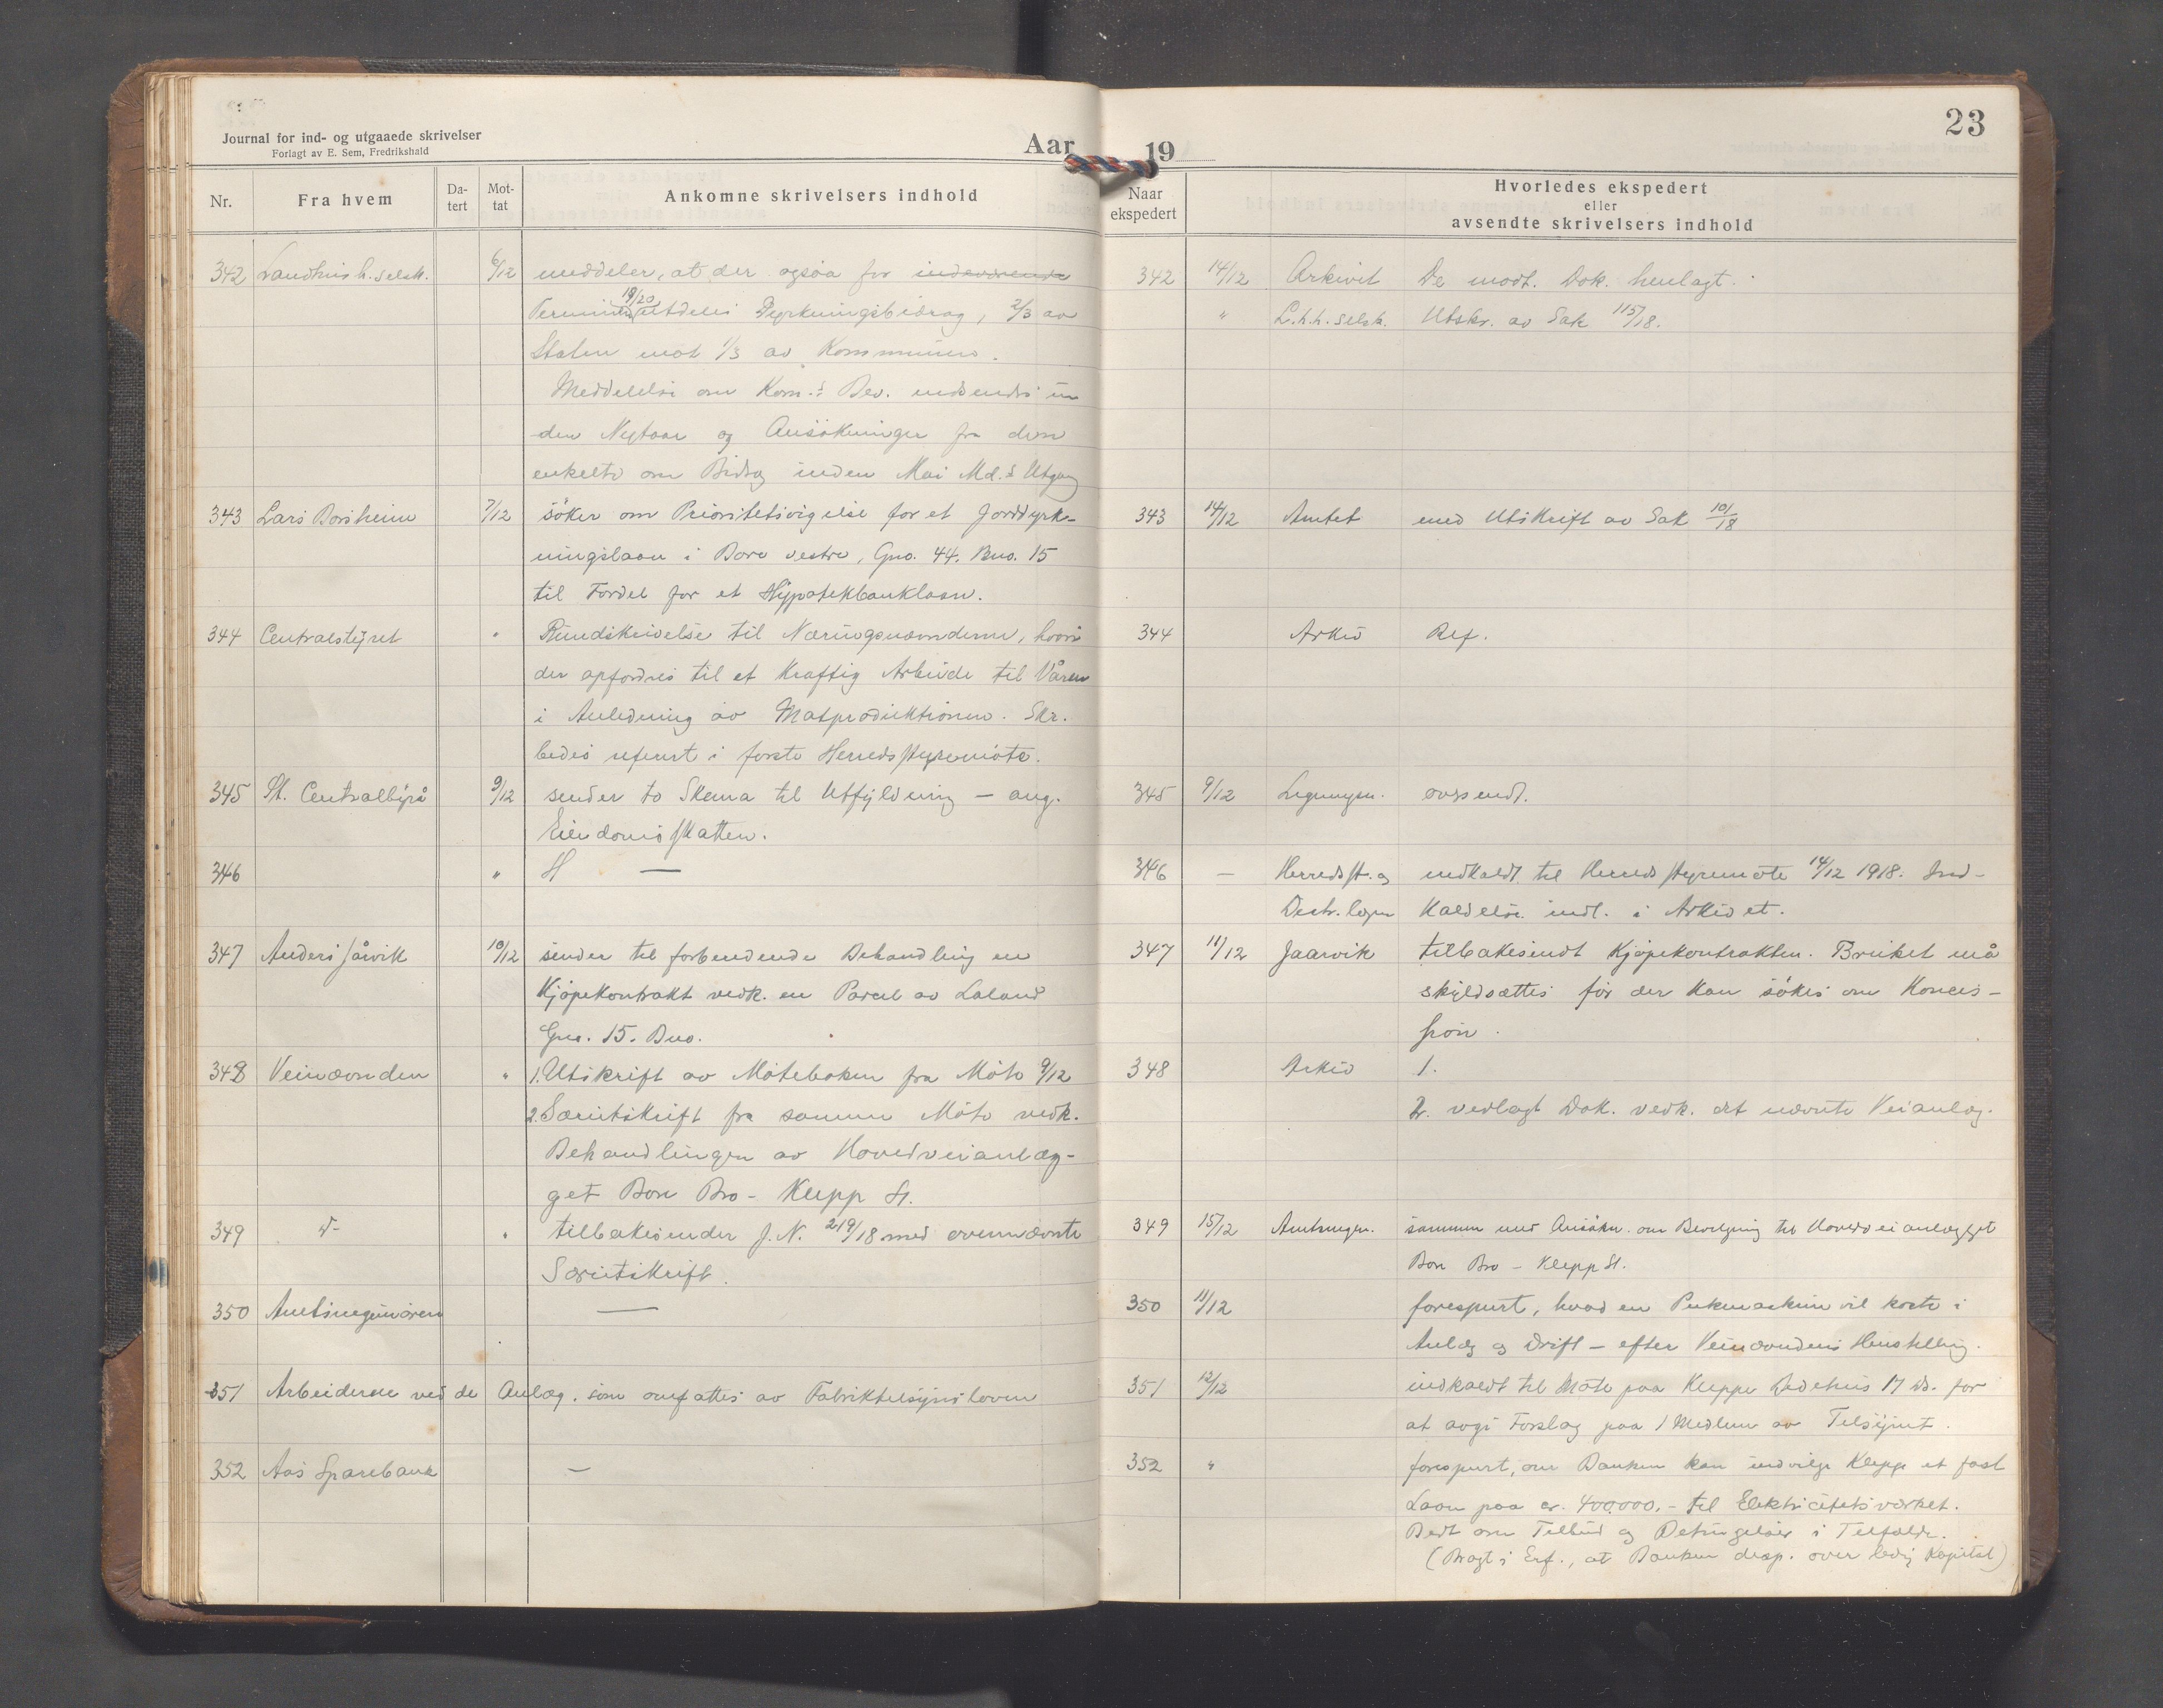 Journal for ind- og utgaaede skrivelser
Forlagt av E. Sem, Fredrikshald
Aar 19
23
Nr. Fra hvem Da-tert Mot-tat Ankomne skrivelsers indhold
342 Landhush. selsk. 6/12 meddeler, at der ogsaa for indeværende
Termin 19/20 utdeles Dyrkningsbidrag, 2/3 av
Staten mot 1/3 av Kommunen.
Meddelelse om Kom.s Bev. indsendes in
den Nytaar og Ansökninger fra den
enkelte om Bidrag inden Mai Md.s Utgang
343 Lars Borsheim 7/12 söker om Prioritetsvigelse for et Jorddyrk-
ningslaan i Bore vestre, Gno. 44. Bno. 15
til Fordel for et Hypotekbanklaan.
344 Centralstyret " Rundskrivelse til Næringsnævnderne, hvori
der opfordres til et kraftig Arbeide til Våren
i Anledning av Matproduktionen. Skr.
bedes referert i første Herredsstyremöte.
345 St. Centralbyrå 9/12 sender to Skema til Utfyldning – ang.
Eiendomsskatten.
346 " H —
347 Anders Jårvik 10/12 sender til forberedende Behandling en
Kjøpekontrakt vedk. en Parcel av Laland
Gno. 15. Bno.
348 Veinævnden " 1. Utskrift av Møteboken fra Møte 9/12
2. Særutskrift fra samme Møte vedk.
Behandlingen av Hovedveianlæg-
get Bore Bro – Klepp St.
349 " tilbakesender J.N. 219/18 med ovennævnte
Særutskrift.
350 Amtsingeniøren —
351 Arbeiderne ved de Anlæg. som omfattes av Fabriktilsynsloven
352 Aas Sparebank —
Naar ekspedert Hvorledes ekspedert
eller
avsendte skrivelsers indhold
342 14/12 Arkivet De modt. Dok. henlagt.
" L.h.h. selsk. Utskr. av Sak 115/18.
343 14/12 Amtet med Utskrift av Sak 101/18
344 Arkiv Ref.
345 9/12 Ligningsn. oversendt.
346 — Herredsst. og indkaldt til Herredsstyremöte 14/12 1918. Ind-
Distr. lægen kaldelse indl. i Arkivet.
347 11/12 Jaarvik tilbakesendt Kjøpekontrakten. Bruket må
skyldsættes før der kan søkes om Konces-
sion.
348 Arkiv 1.
2. vedlagt Dok. vedk. det nævnte Veianlæg.
349 15/12 Amtsingen. sammen med Ansökn. om Bevilgning til Hovedveianlægget
Bore Bro – Klepp St.
350 11/12 forespurt, hvad en Pukmaskine vil koste i
Anlæg og Drift – efter Veinævndens Henstilling.
351 12/12 indkaldt til Møte paa Kleppe Bedehus 17 ds. for
at avgi Forslag paa 1 Medlem av Tilsynet.
352 " forespurt, om Banken kan indvilge Klepp et fast
Laan paa cr. 400.000.- til Elektricitetsverket.
Bedt om Tilbud og Betingelser i Tilfælde.
(Bragt i Erf., at Banken disp. over ledig Kapital)